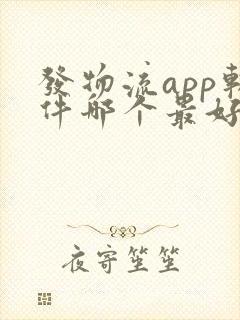 發物流app軟
件哪个最好
夜寄笙笙